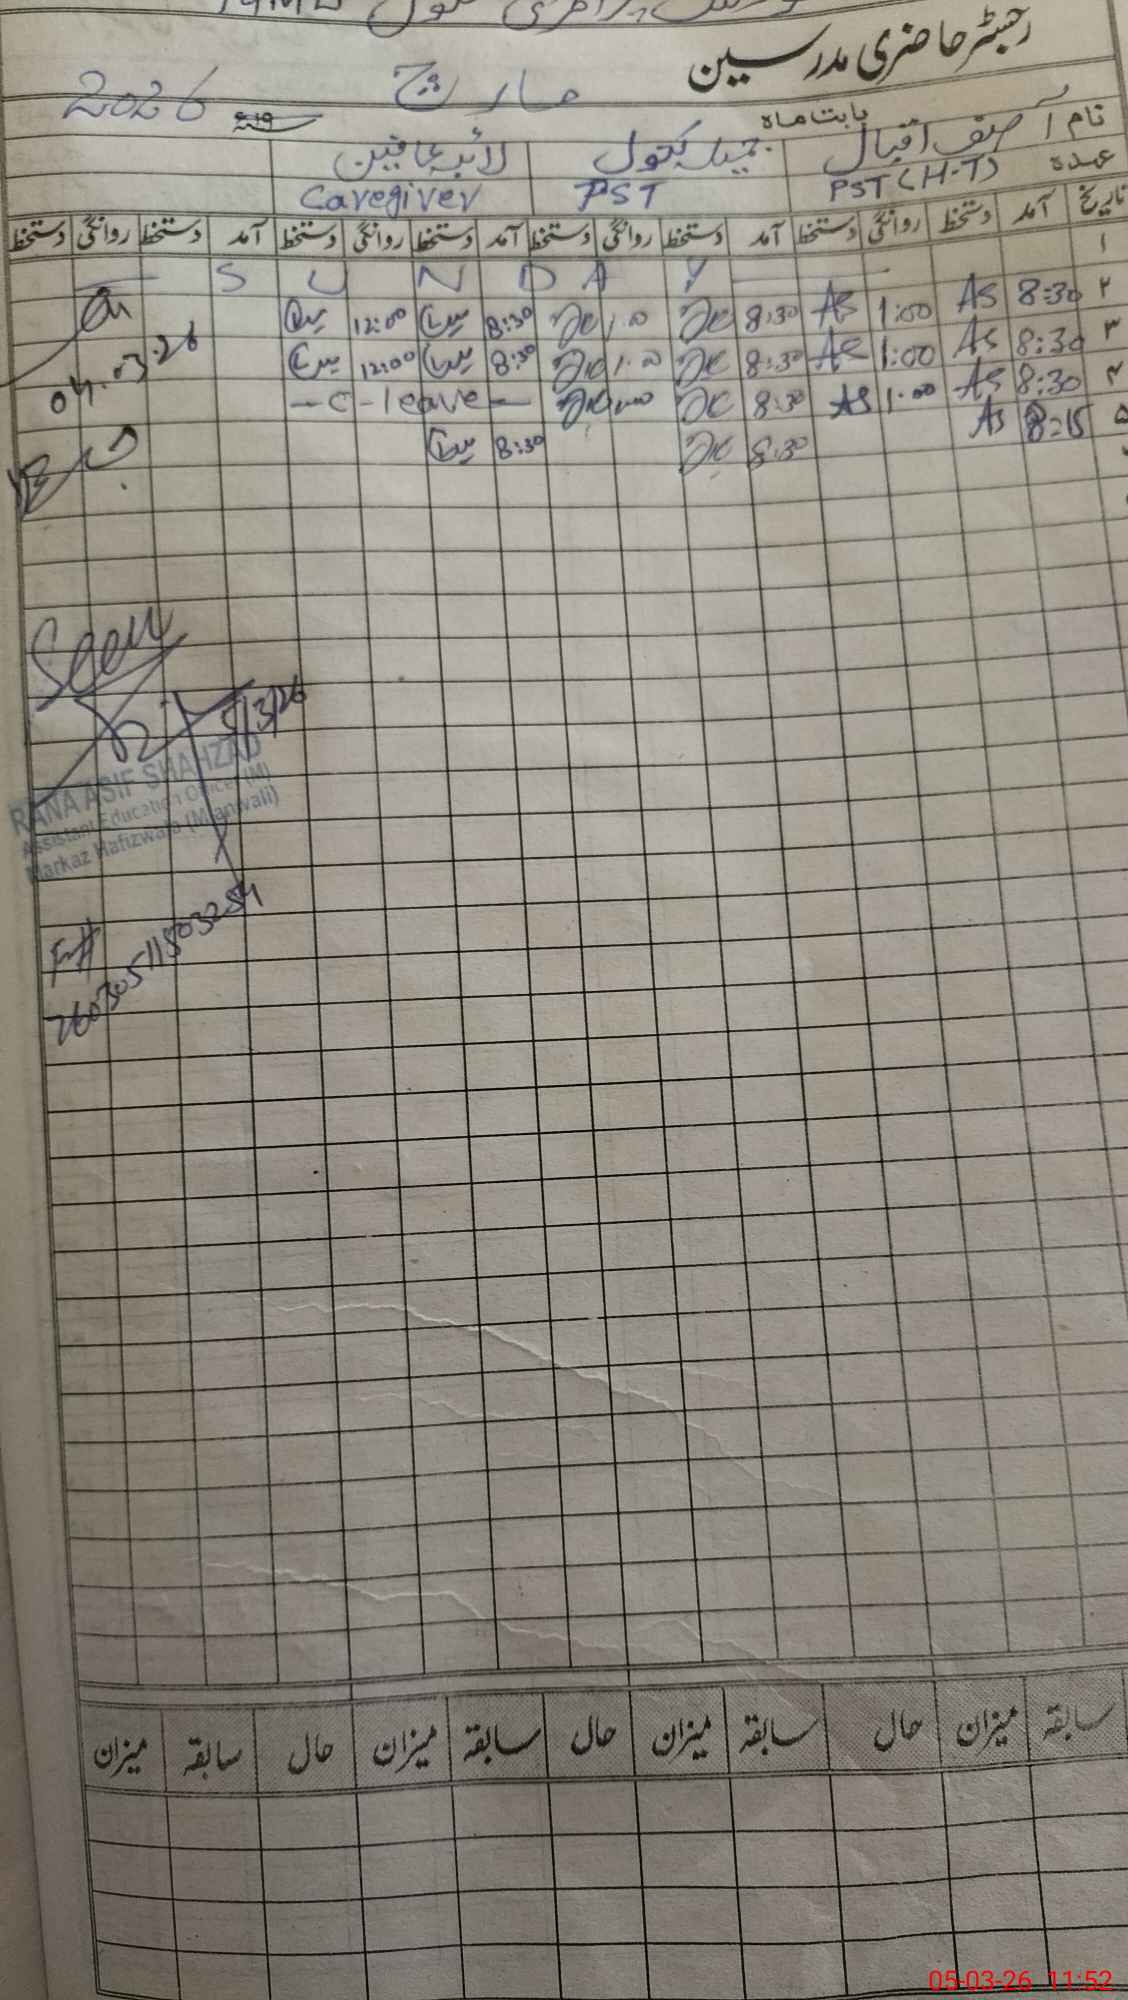 رجسٹر حاضری مدرسین
بابت ماہ مارچ ۱۹ء 2026
نام آصف اقبال جمیلہ بتول لائبہ عافین
عہدہ PST (H-T) PST Caregiver
تاریخ آمد دستخط روانگی دستخط آمد دستخط روانگی دستخط آمد دستخط روانگی دستخط آمد دستخط روانگی دستخط
۱ S U N D A Y
۲ 8:30 AS 1:00 AS 8:30 1:00 8:30 12:00
۳ 8:30 AS 1:00 AS 8:30 1:00 8:30 12:00
۴ 8:30 AS 1:00 AS 8:30 1:00 - C - leave -
۵ 8:15 AS 8:30 8:30
04.03.26
Seen
5/3/26
RANA ASIF SHAHZAD
Assistant Education Officer (M)
Markaz Hafizwala (Mianwali)
F#
26030511503254
سابقہ میزان حال سابقہ میزان حال سابقہ میزان حال سابقہ میزان
05-03-26 11:52